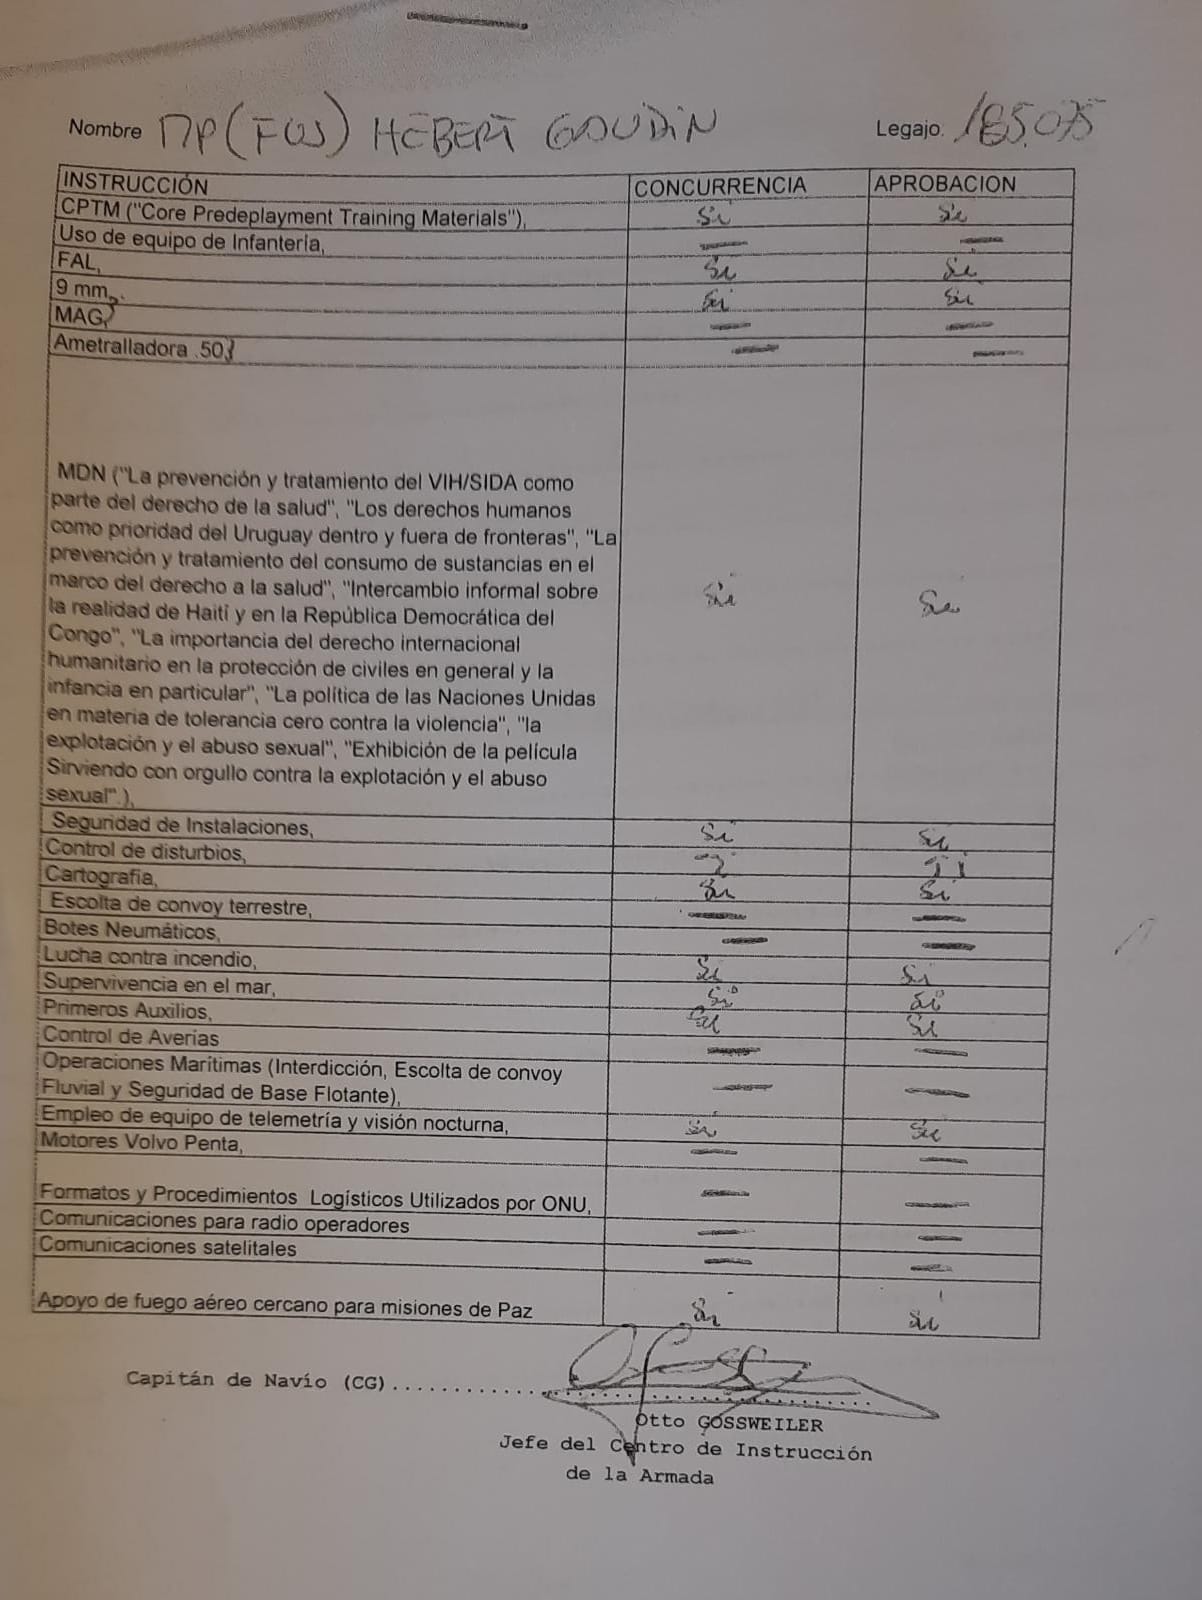 Nombre MP (FUS) HEBERT GAUDIN Legajo. 185.075
INSTRUCCIÓN CONCURRENCIA APROBACION
CPTM ("Core Predeplayment Training Materials"), Si Si
Uso de equipo de Infantería, — —
FAL, Si Si
9 mm, Si Si
MAG, — —
Ametralladora .50, — —
MDN ("La prevención y tratamiento del VIH/SIDA como
parte del derecho de la salud", "Los derechos humanos
como prioridad del Uruguay dentro y fuera de fronteras", "La
prevención y tratamiento del consumo de sustancias en el
marco del derecho a la salud", "Intercambio informal sobre
la realidad de Haití y en la República Democrática del
Congo", "La importancia del derecho internacional
humanitario en la protección de civiles en general y la
infancia en particular", "La política de las Naciones Unidas
en materia de tolerancia cero contra la violencia", "la
explotación y el abuso sexual", "Exhibición de la película
Sirviendo con orgullo contra la explotación y el abuso
sexual".), Si Si
Seguridad de Instalaciones, Si Si
Control de disturbios,
Cartografía, Si Si
Escolta de convoy terrestre, — —
Botes Neumáticos, — —
Lucha contra incendio, Si Si
Supervivencia en el mar, Si Si
Primeros Auxilios, Si Si
Control de Averías — —
Operaciones Marítimas (Interdicción, Escolta de convoy
Fluvial y Seguridad de Base Flotante), — —
Empleo de equipo de telemetría y visión nocturna, Si Si
Motores Volvo Penta, — —
Formatos y Procedimientos Logísticos Utilizados por ONU, — —
Comunicaciones para radio operadores — —
Comunicaciones satelitales — —
Apoyo de fuego aéreo cercano para misiones de Paz Si Si
Capitán de Navío (CG)..............................
Otto GOSSWEILER
Jefe del Centro de Instrucción
de la Armada